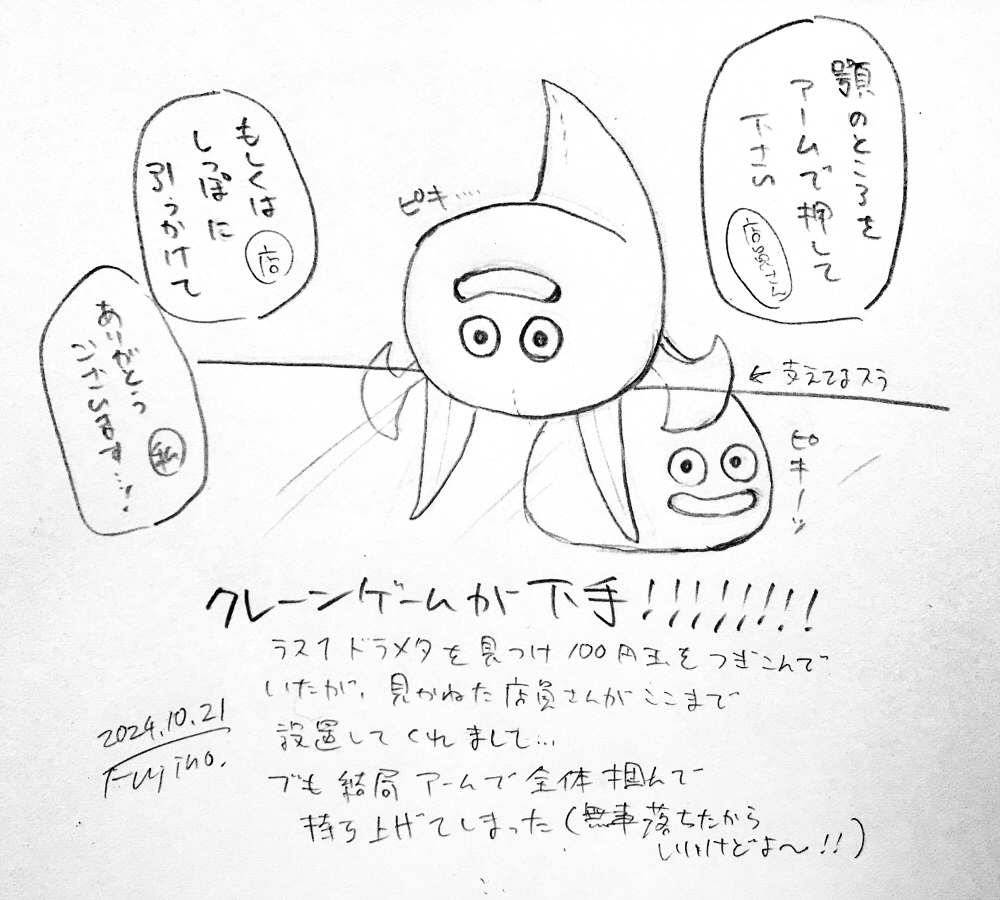 顎のところを
アームで押して
下さい
店員さん
もしくは
しっぽに
引っかけて
店
ありがとう
ございます…!
私
ピキ……
←支えてるスラ
ピキーッ
クレーンゲームが下手!!!!!!!!
ラス1ドラメタを見つけ100円玉をつぎこんで
いたが、見かねた店員さんがここまで
設置してくれまして…
でも結局アームで全体掴んで
持ち上げてしまった(無事落ちたから
いいけどよ〜!!)
2024.10.21
Fujino.